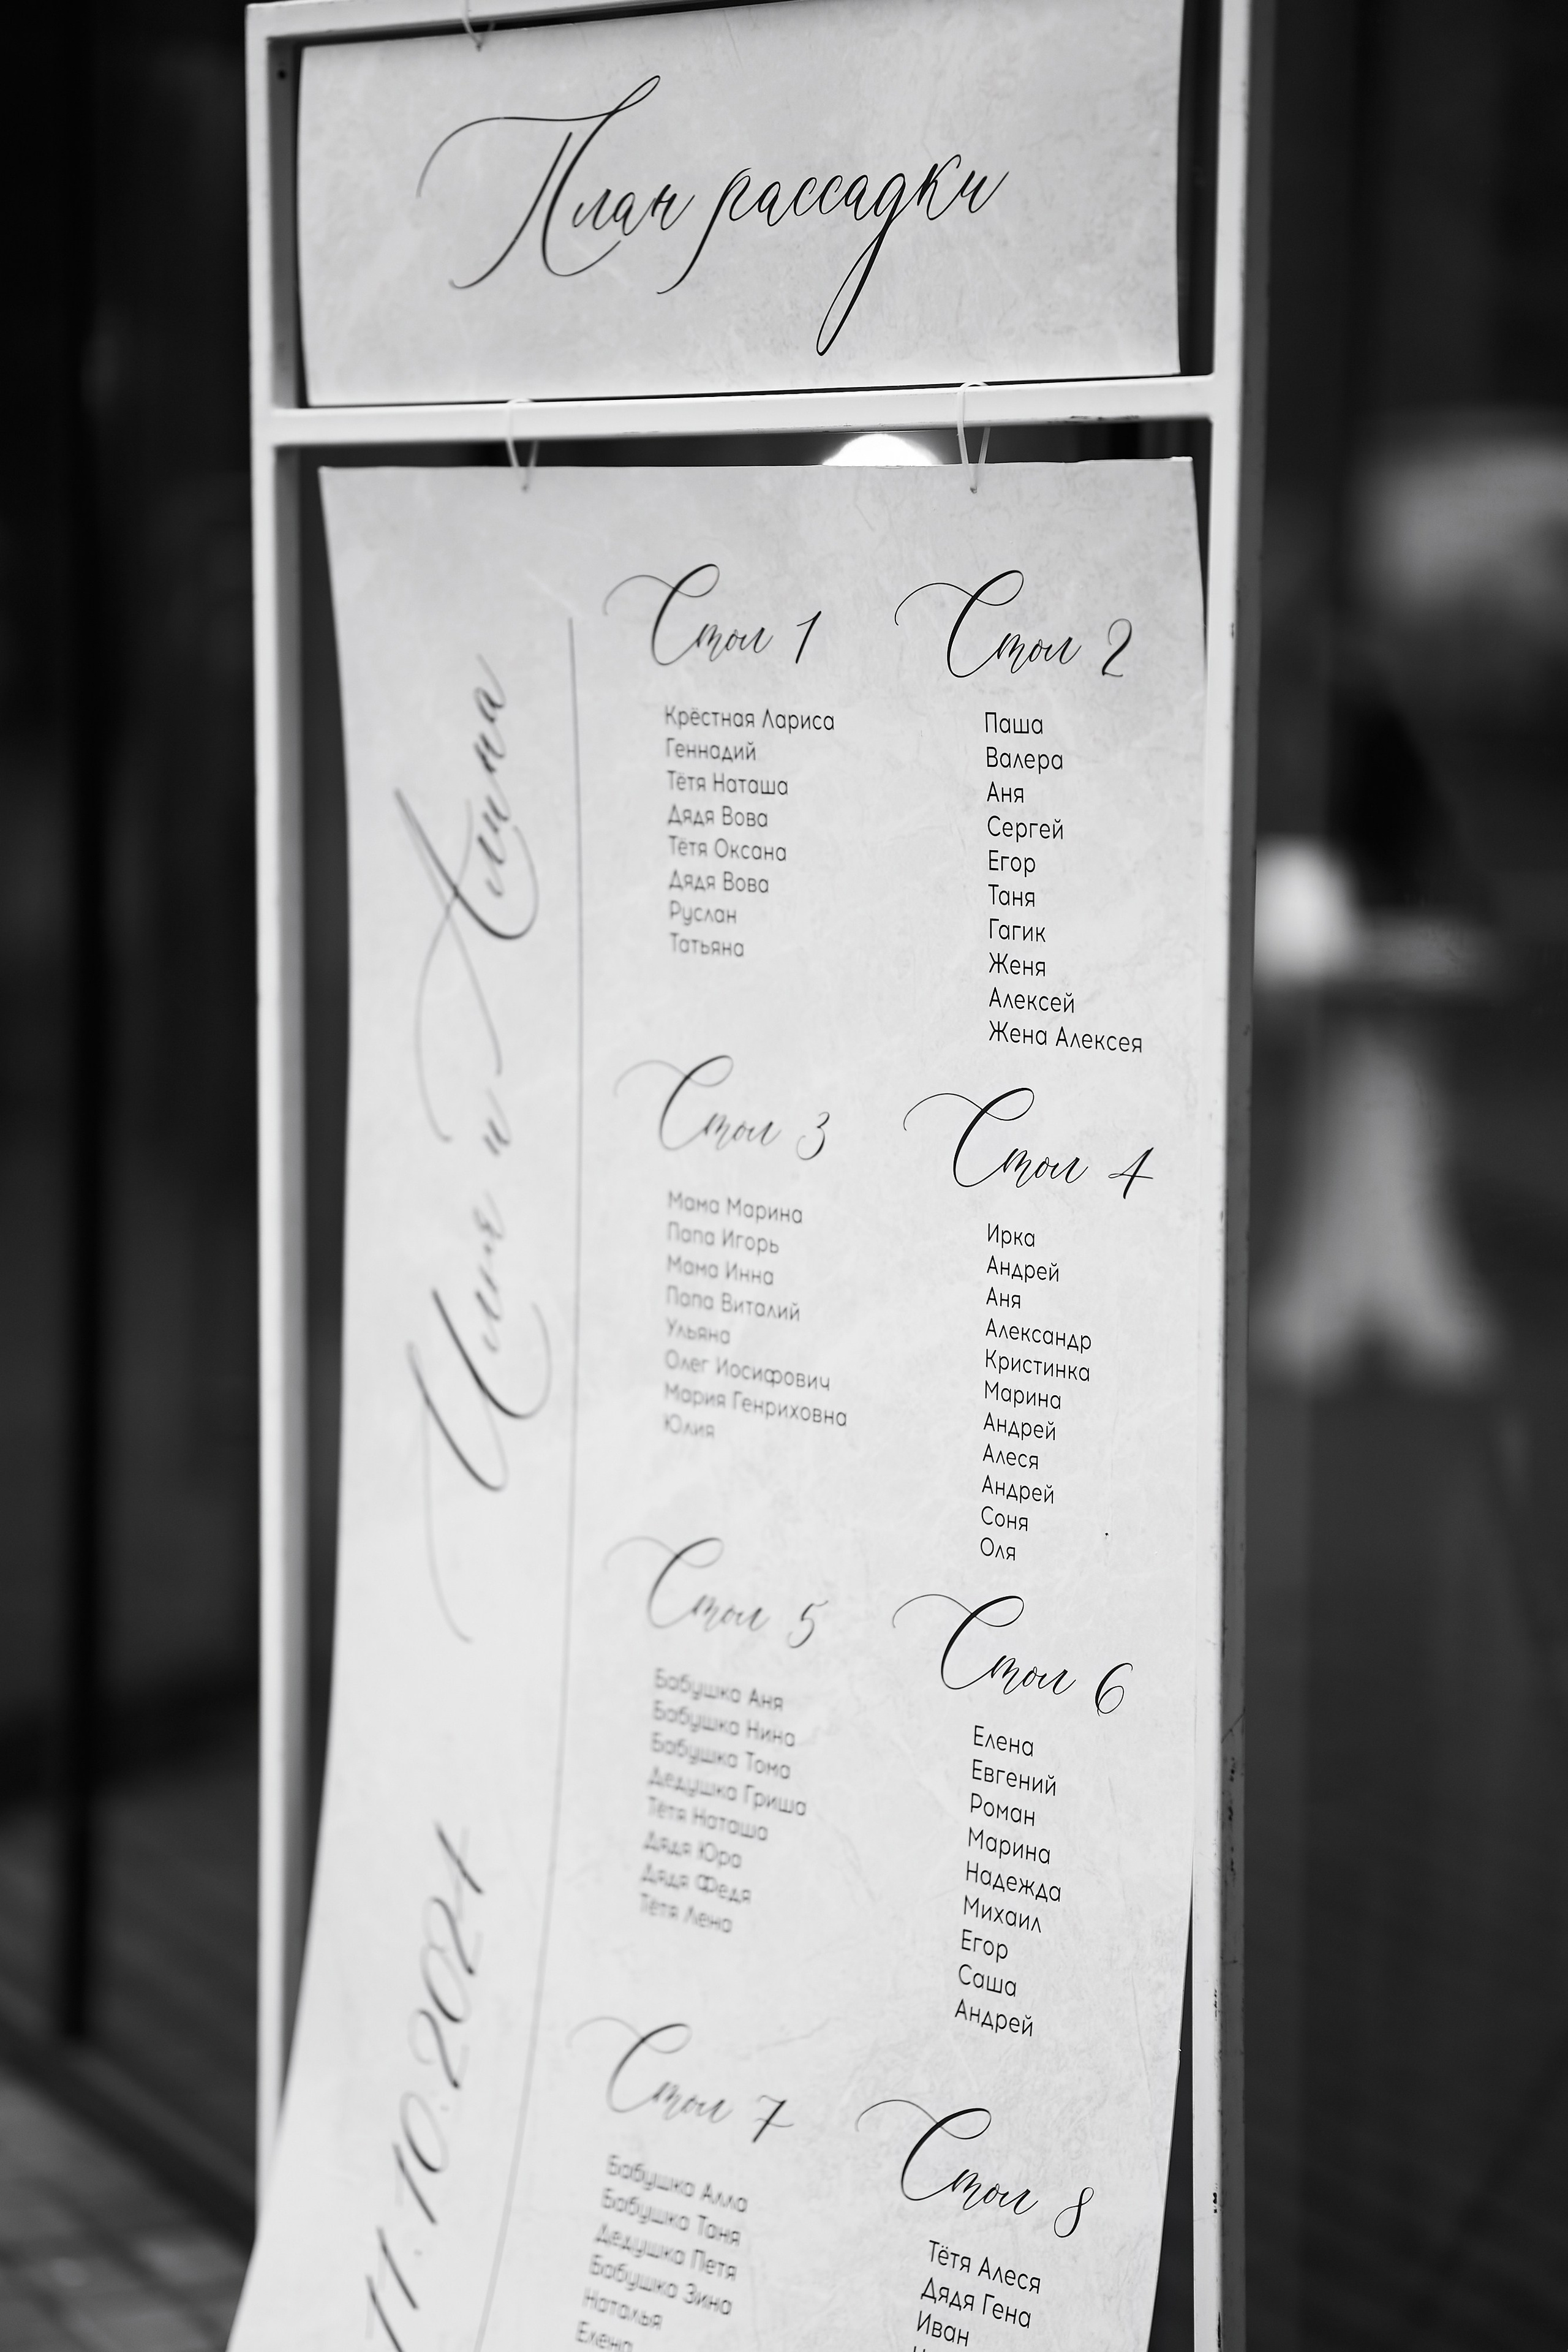 План рассадки
Илья и Алина
11.10.2024
Стол 1
Крёстная Лариса
Геннадий
Тётя Наташа
Дядя Вова
Тётя Оксана
Дядя Вова
Руслан
Татьяна
Стол 2
Паша
Валера
Аня
Сергей
Егор
Таня
Гагик
Женя
Алексей
Жена Алексея
Стол 3
Мама Марина
Папа Игорь
Мама Инна
Папа Виталий
Ульяна
Олег Иосифович
Мария Генриховна
Юлия
Стол 4
Ирка
Андрей
Аня
Александр
Кристинка
Марина
Андрей
Алеся
Андрей
Соня
Оля
Стол 5
Бабушка Аня
Бабушка Нина
Бабушка Тома
Дедушка Гриша
Тётя Наташа
Дядя Юра
Дядя Федя
Тётя Лена
Стол 6
Елена
Евгений
Роман
Марина
Надежда
Михаил
Егор
Саша
Андрей
Стол 7
Бабушка Алла
Бабушка Таня
Дедушка Петя
Бабушка Зина
Наталья
Елена
Стол 8
Тётя Алеся
Дядя Гена
Иван